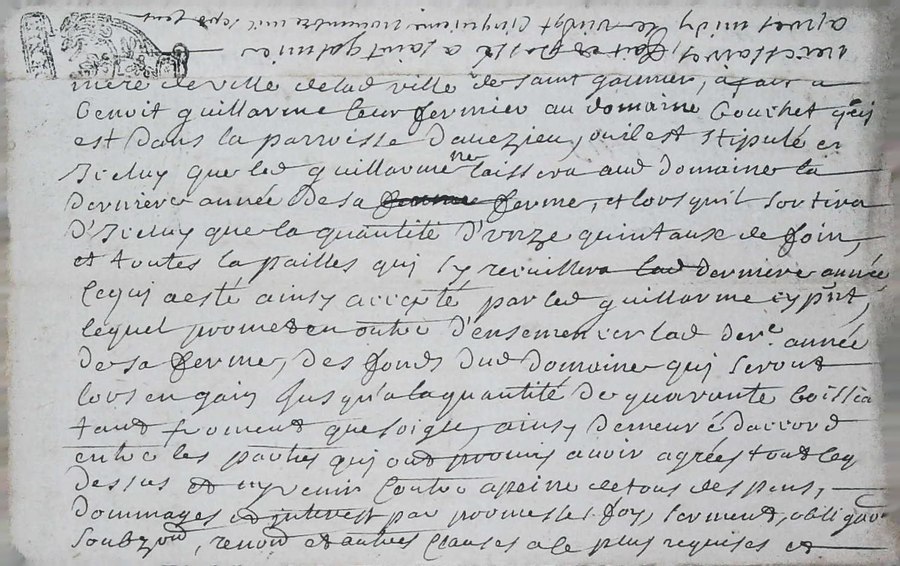 mere de ville de lad ville de saint galmier, a fait a
benoit guillarme leur fermier au domaine bouchet qui
est dans la parroisse davezieu, ou il est stipulé en
Jceluy que led guillarme ne laissera aud domaine la
derniere année de sa ferme, et lors quil sortira
d'Jceluy que la quantité d'unze quintaux de foin,
et toutes la pailles qui sy recuillera lad derniere année
ce qui a esté ainsy accepté par led guillarme cy pnt,
lequel promet en outre d'ensemencer lad dere année
de sa ferme, des fonds dud domaine qui seront
lors en gain Jusqu'a la quantité de quarante
tant froment que soigle, ainsy demeuré daccord
entre les parties qui ont promis avoir agrées tout ce
dessus et ny venir contre a peine de tous despens,
dommages et interest par promesse foy, serment,
renon et autres clauses a ce plus requises et
necessaires, fait et passé a saint galmier
apres midy le vingt cinquieme novembre mil sept cent